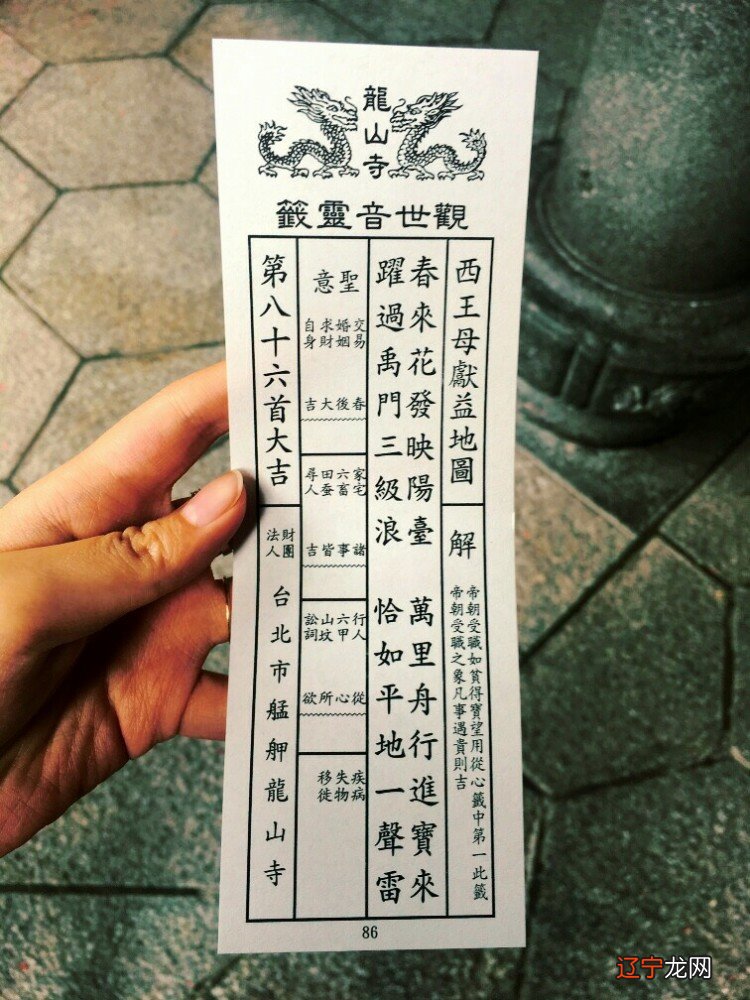 龍山寺
觀世音靈籤
西王母獻益地圖
解
帝朝受職如貧得寶望用從心籤中第一此籤
帝朝受職之象凡事遇貴則吉
春來花發映陽臺 萬里舟行進寶來
躍過禹門三級浪 恰如平地一聲雷
聖意
交易
婚姻
求財
自身
春後大吉
家宅
六畜
田蚕
尋人
諸事皆吉
行人
六甲
山坟
訟詞
從心所欲
疾病
失物
移徙
第八十六首大吉
財團
法人
台北市艋舺龍山寺
86
辽宁龙网